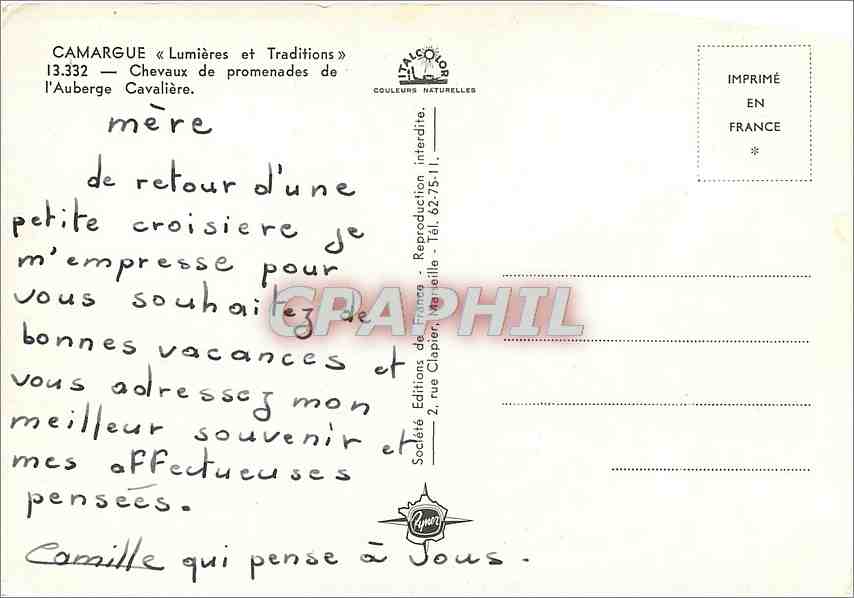 CAMARGUE « Lumières et Traditions »
13.332 — Chevaux de promenades de
l'Auberge Cavalière.
mère
de retour d'une
petite croisiere je
m'empresse pour
vous souhaitez de
bonnes vacances et
vous adressez mon
meilleur souvenir et
mes affectueuses
pensées.
Camille qui pense à vous.
ITALCOLOR
COULEURS NATURELLES
Société Editions de France - Reproduction interdite.
2, rue Clapier, Marseille - Tél. 62-75-11.
IMPRIMÉ
EN
FRANCE
*
CPAPHIL